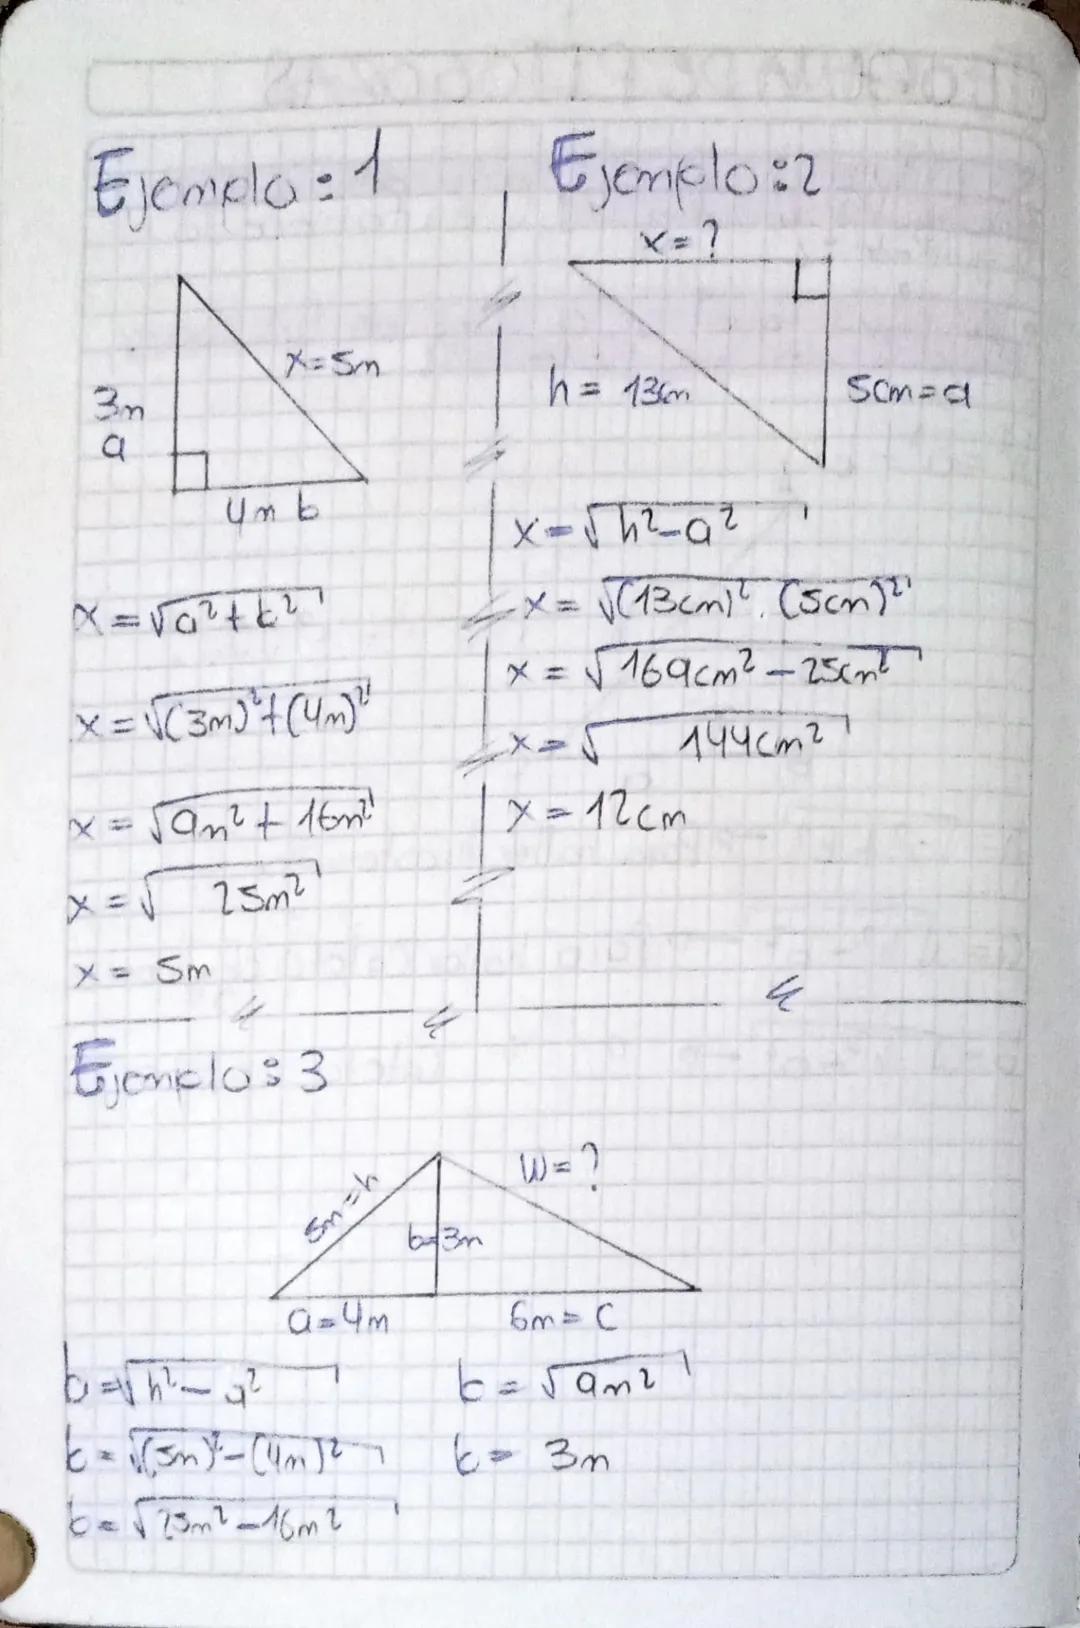 Ejemplo: 1
x = 5m
3m
a
4m b
x = √a² + b²
x = √(3m)² + (4m)²
x = √9m² + 16m²
x = √ 25m²
x = 5m
Ejemplo: 2
x = ?
h = 13cm
5cm = a
x = √h² - a²
x = √(13cm)² . (5cm)²
x = √169cm² - 25cm²
x = √ 144cm²
x = 12cm
Ejemplo: 3
5m = h
w = ?
b = 3m
a = 4m
6m = c
b = √h² - a²
b = √(5m)² - (4m)²
b = √25m² - 16m²
b = √9m²
b = 3m